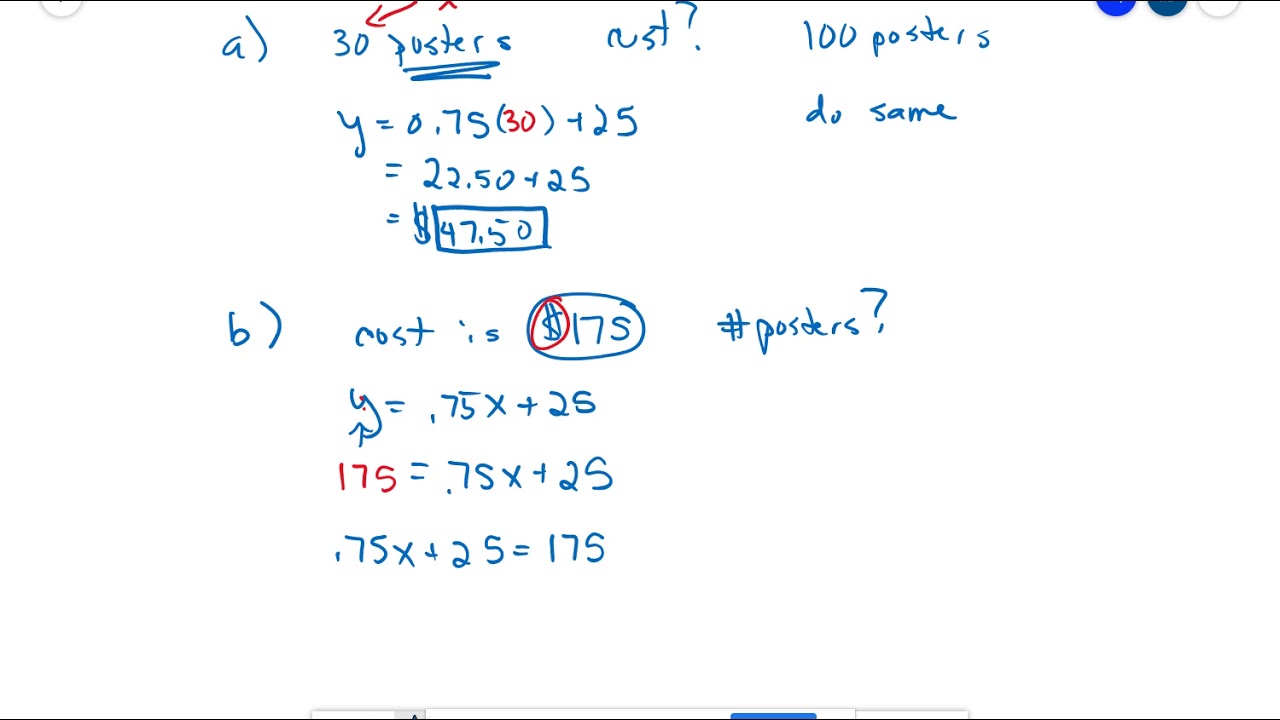 x
a) 30 posters cost? 100 posters
y = 0.75(30) + 25 do same
= 22.50 + 25
= $47.50
b) cost is $175 # posters?
y = .75x + 25
175 = .75x + 25
.75x + 25 = 175